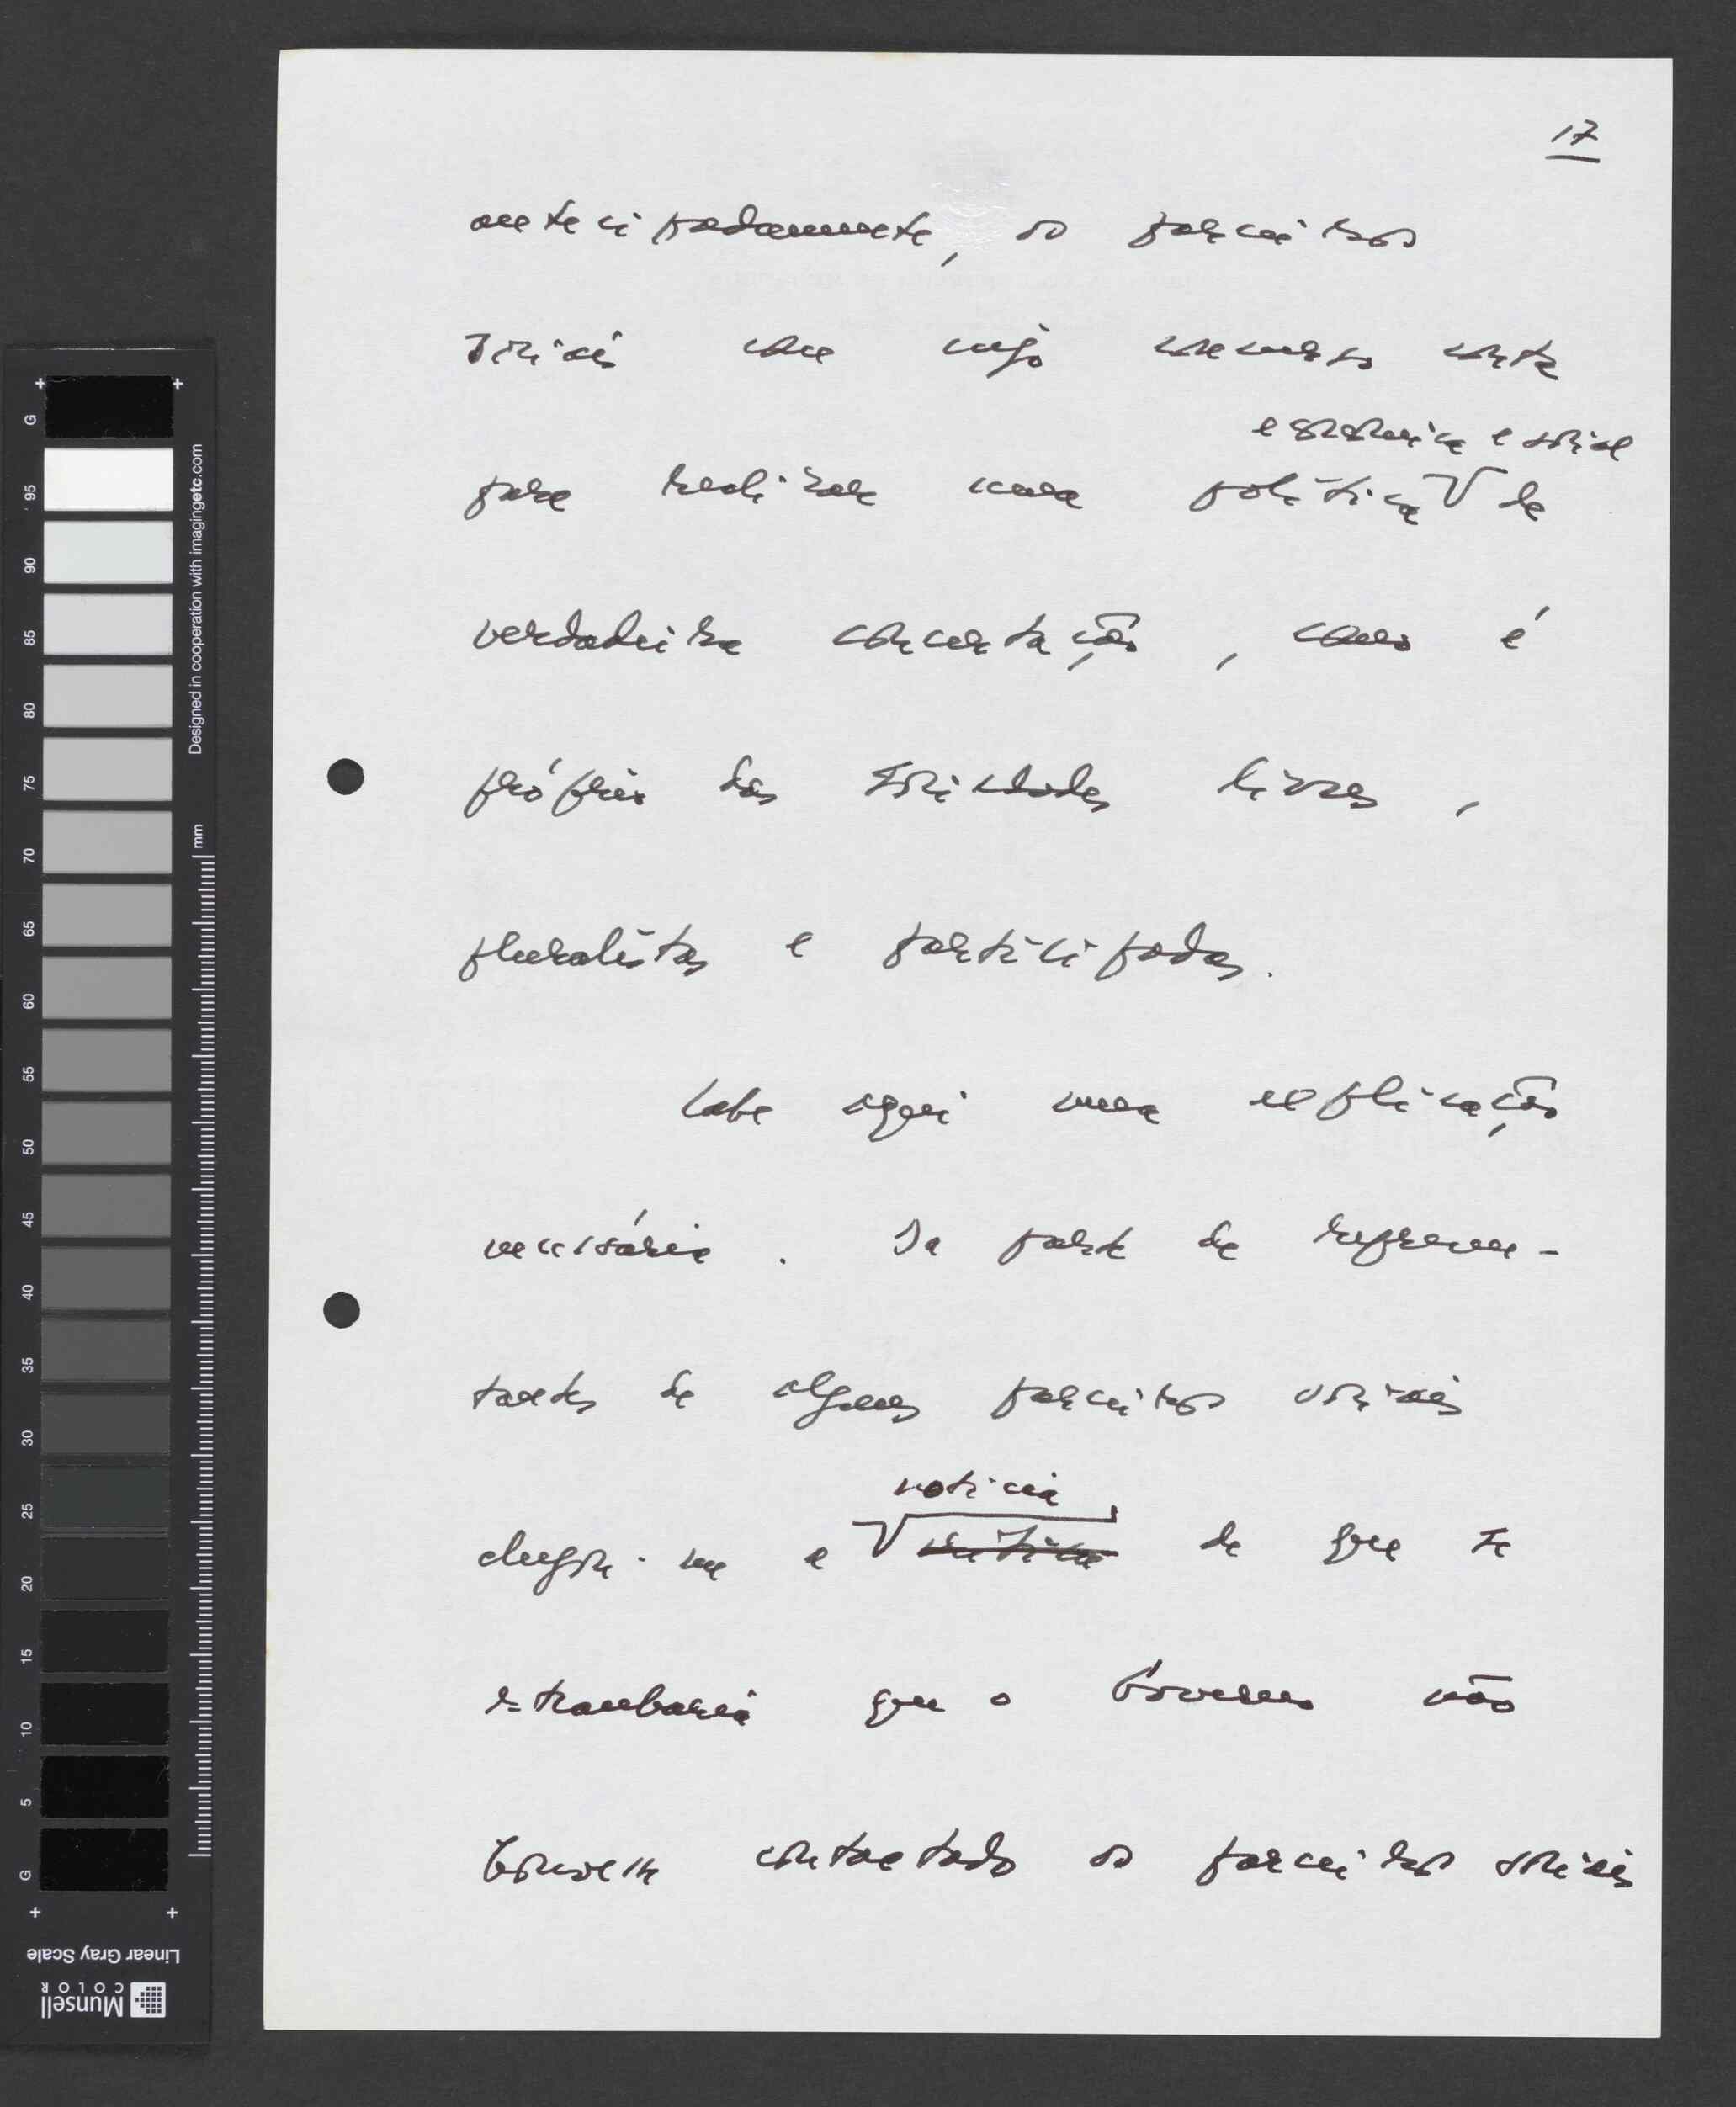 17
antecipadamente, os parceiros
sociais com cujo concurso conta
económica e social
para realizar uma política de
verdadeira concertação, como é
próprio das sociedades livres,
pluralistas e participadas.
Cabe aqui uma explicação
necessária. Da parte de represen-
tantes de alguns parceiros sociais
notícia
chegou-me a crítica de que se
estranharia que o Governo não
houvesse contactado os parceiros sociais
G
95
90
85
80
75
70
65
60
55
50
45
40
35
30
25
20
15
10
5
G
Designed in cooperation with imagingetc.com
mm
Linear Gray Scale
Munsell
COLOR